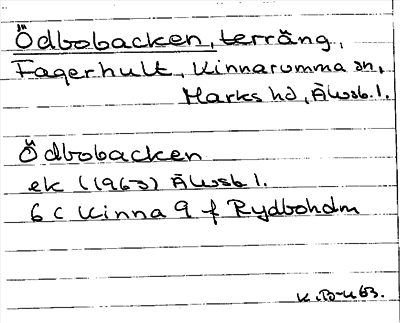 Ödbobacken, terräng,
Fagerhult, Kinnarumma sn,
Marks hd, Älvsb. l.
Ödbobacken
ek (1963) Älvsb l.
6 C Kinna 9 f Rydboholm
63.